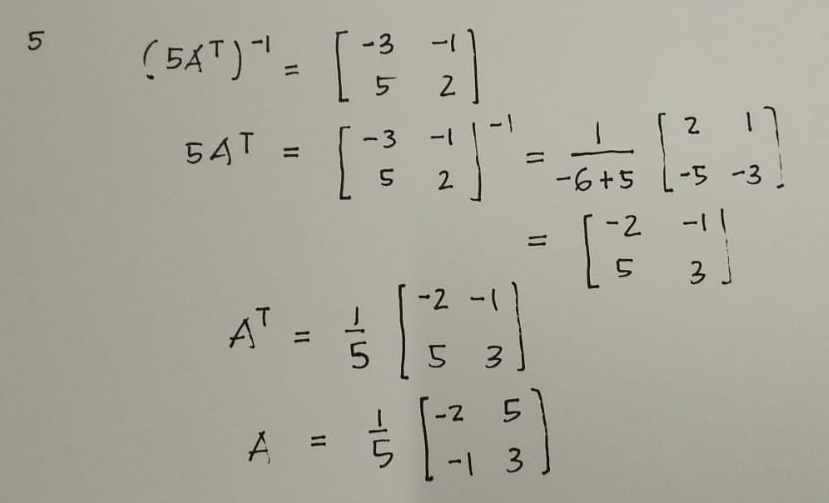 5 (5Aᵀ)⁻¹ = [-3 -1; 5 2]
5Aᵀ = [-3 -1; 5 2]⁻¹ = 1/(-6+5) [2 1; -5 -3]
= [-2 -1; 5 3]
Aᵀ = 1/5 [-2 -1; 5 3]
A = 1/5 [-2 5; -1 3]